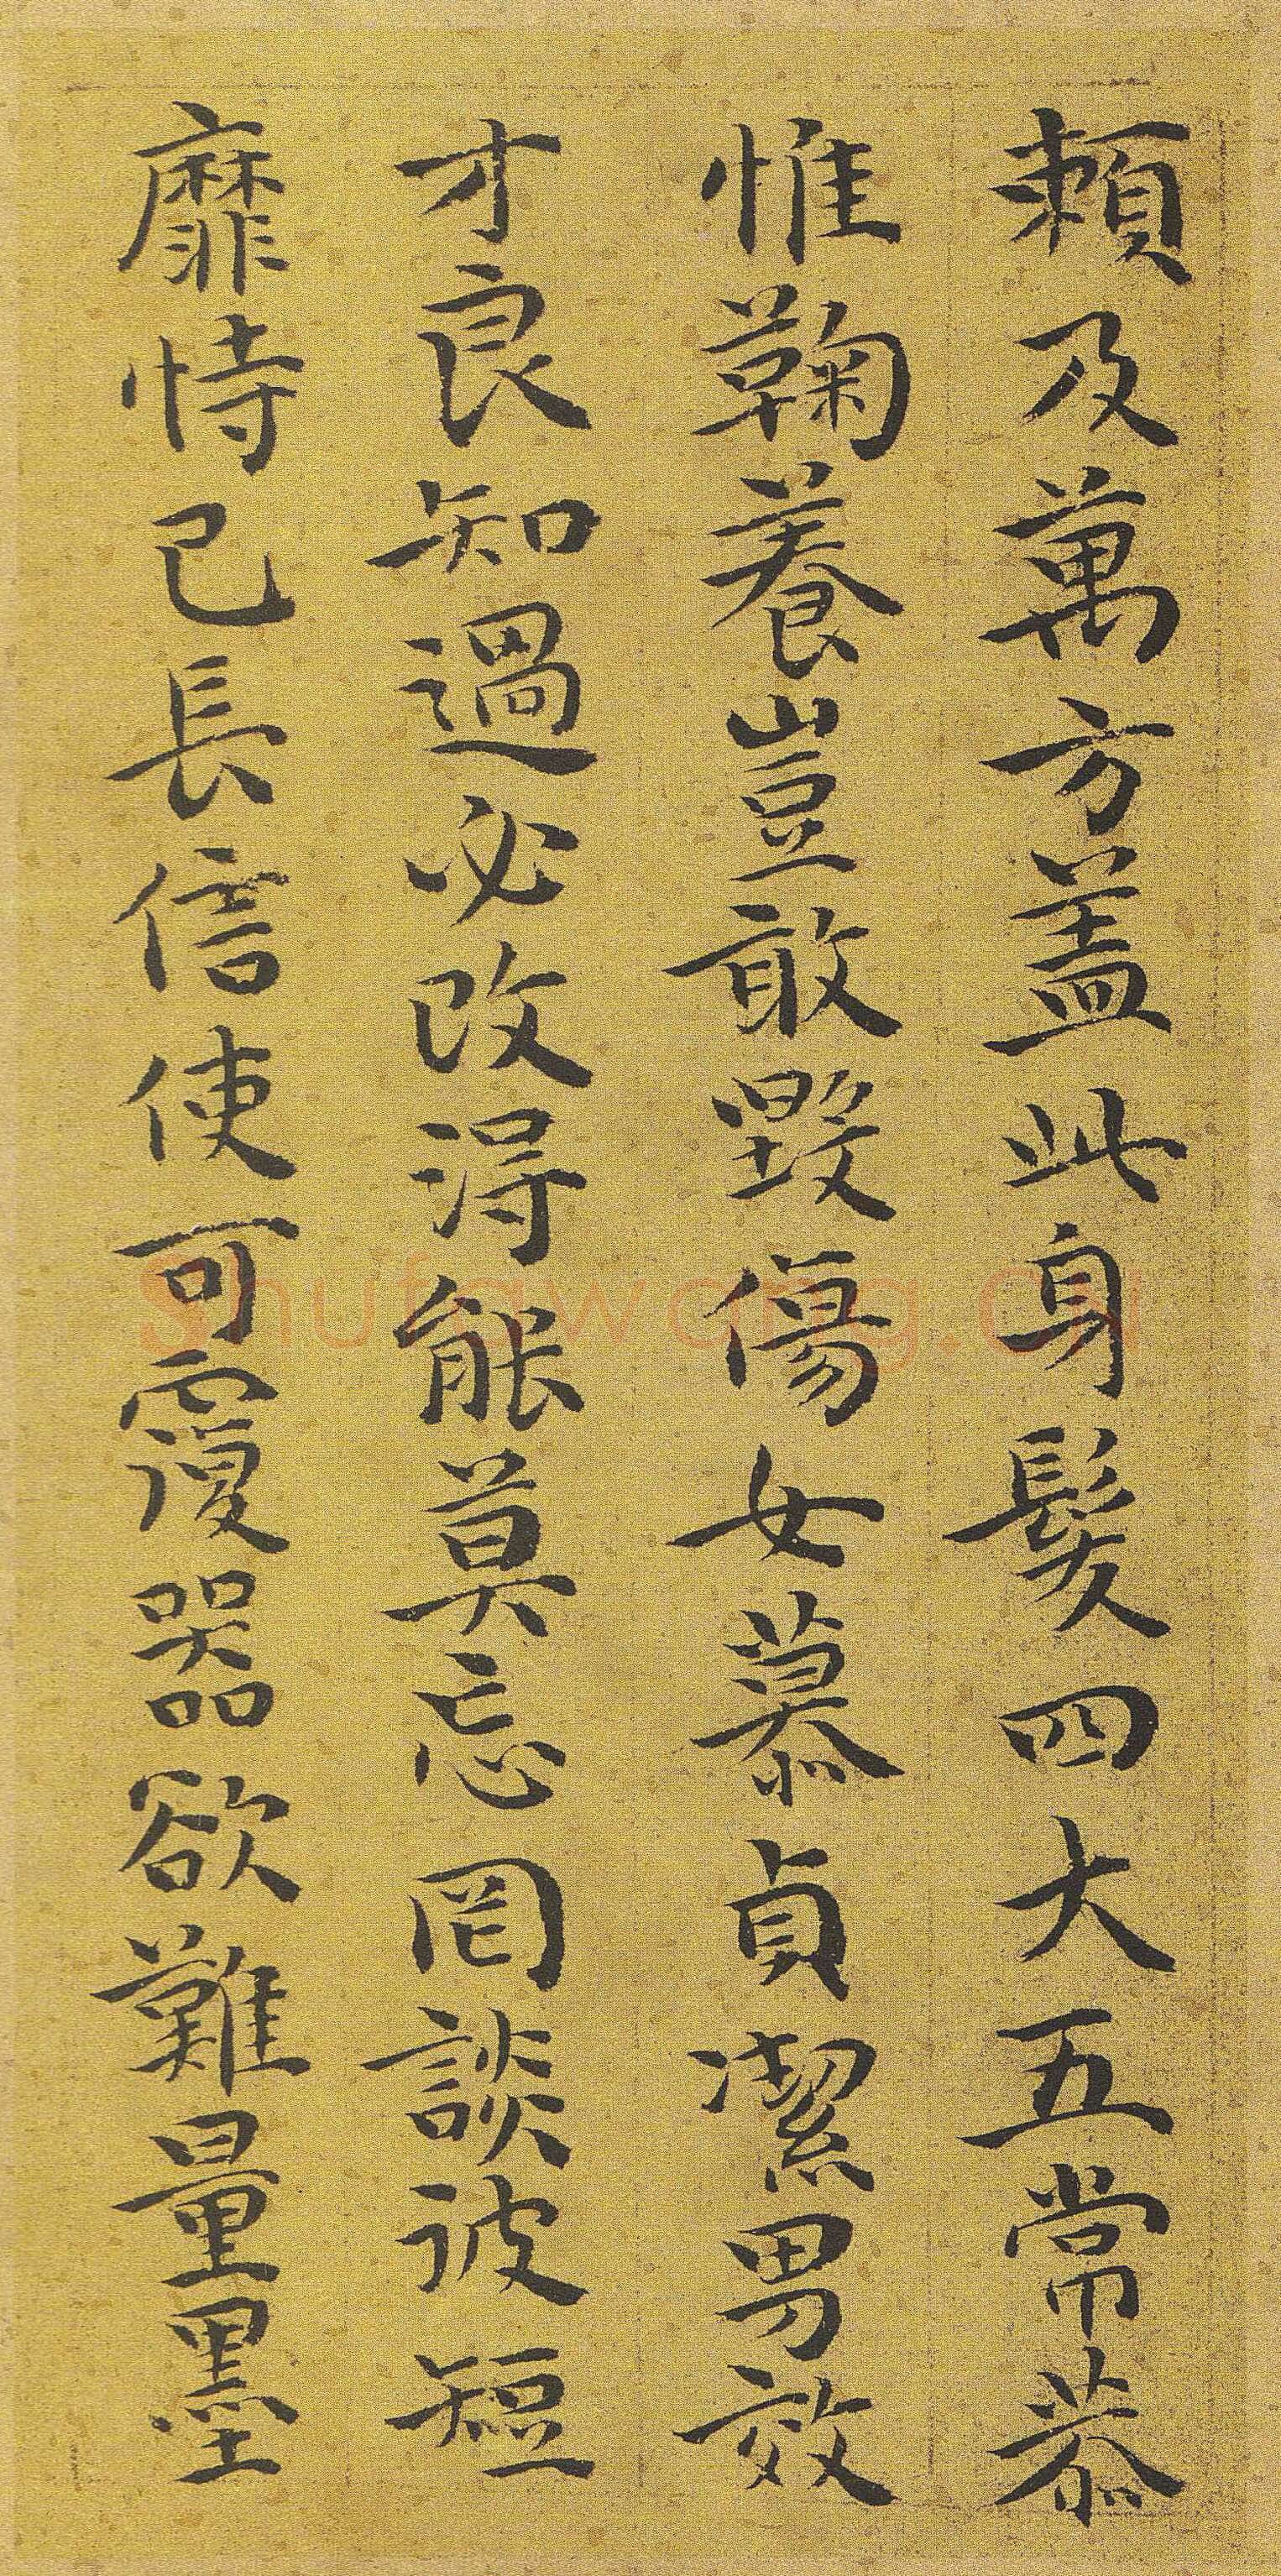 賴及萬方蓋此身髮四大五常恭
惟鞠養豈敢毀傷女慕貞潔男效
才良知過必改得能莫忘罔談彼短
靡恃己長信使可覆器欲難量墨
Shufawang.cn